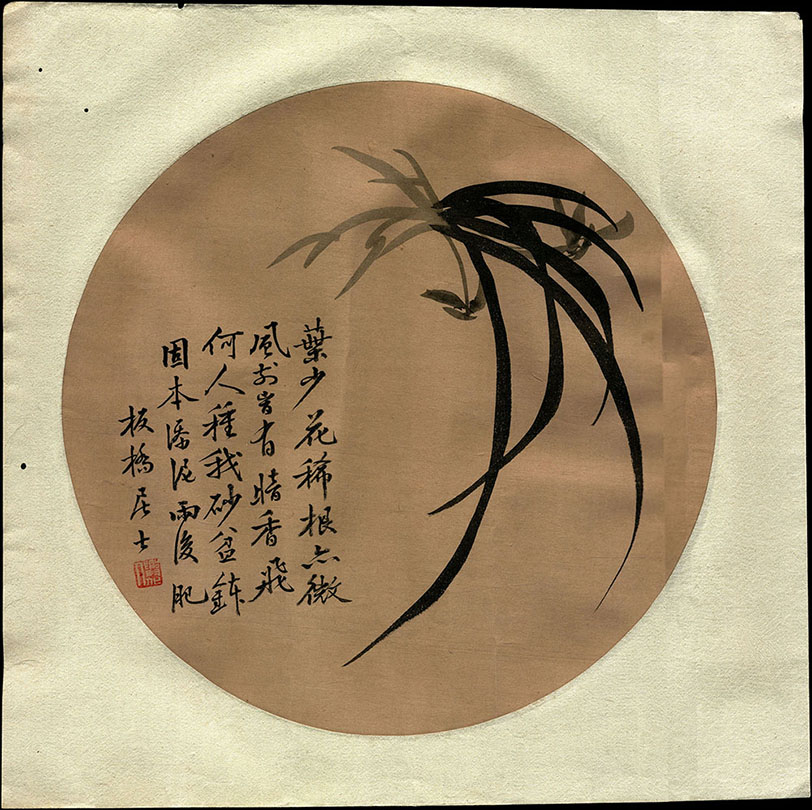 葉少花稀根亦微
風前旹有暗香飛
何人種我砂盆鉢
固本添泥雨後肥
板橋居士